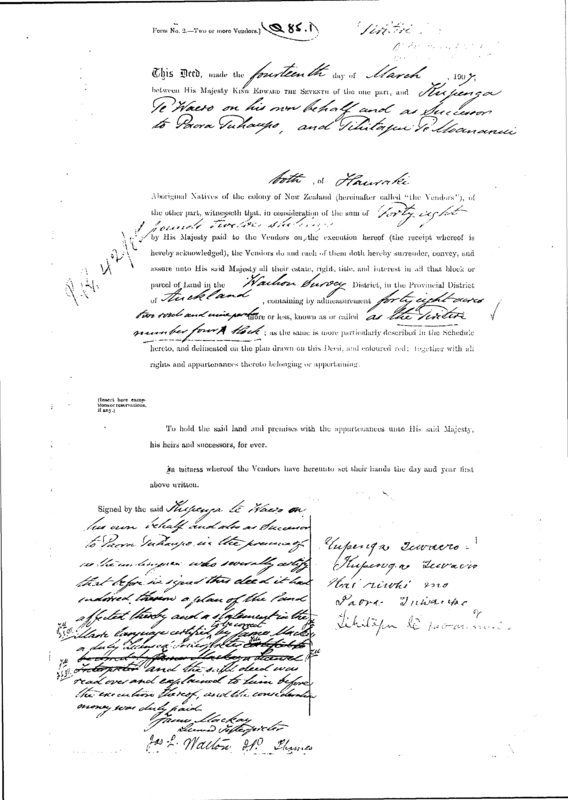 Form No. 2.—Two or more Vendors.]
This Deed, made the fourteenth day of March, 1907,
between His Majesty King Edward the Seventh of the one part, and Kupenga
Te Waero on his own behalf and as Successor
to Paora Tuhaupo, and
both, of Hauraki
Aboriginal Natives of the colony of New Zealand (hereinafter called "the Vendors"), of
the other part, witnesseth that, in consideration of the sum of Forty eight
pounds twelve shillings
by His Majesty paid to the Vendors on the execution hereof (the receipt whereof is
hereby acknowledged), the Vendors do and each of them doth hereby surrender, convey, and
assure unto His said Majesty all their estate, right, title, and interest in all that block or
parcel of Land in the Survey District, in the Provincial District
of Auckland, containing by admeasurement forty eight acres
more or less, known as or called as the
number four A Block; as the same is more particularly described in the Schedule
hereto, and delineated on the plan drawn on this Deed, and coloured red; together with all
rights and appurtenances thereto belonging or appertaining.
(Insert here exemp-
tions or reservations,
if any.)
To hold the said land and premises with the appurtenances unto His said Majesty,
his heirs and successors, for ever.
In witness whereof the Vendors have hereunto set their hands the day and year first
above written.
Signed by the said Kupenga te Waero on
his own behalf and also as Successor
to Paora Tuhaupo in the presence of
us the undersigned who severally certify
that before he signed this deed it had
endorsed thereon a plan of the land
affected thereby and a statement in the
Maori language certified by James Mackay
a duly licensed Interpreter
and the said deed was
read over and explained to him before
the execution thereof, and the consideration
money was duly paid.
James Mackay
Licensed Interpreter
Jas L. Walton J.P. Thames
Kupenga Tewaero
Kupenga Tewaero
Hai riwhi mo
Paora